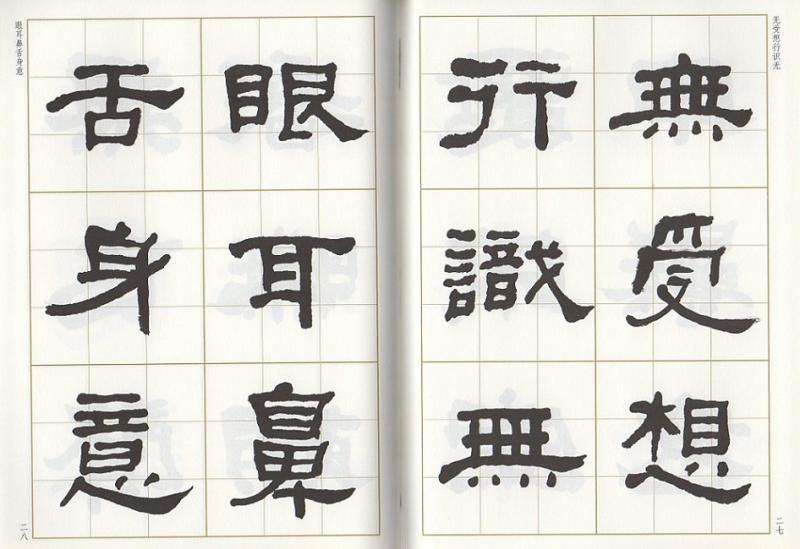 无受想行识无
無受想
行識無
二七
眼耳鼻舌身意
眼耳鼻
舌身意
二八